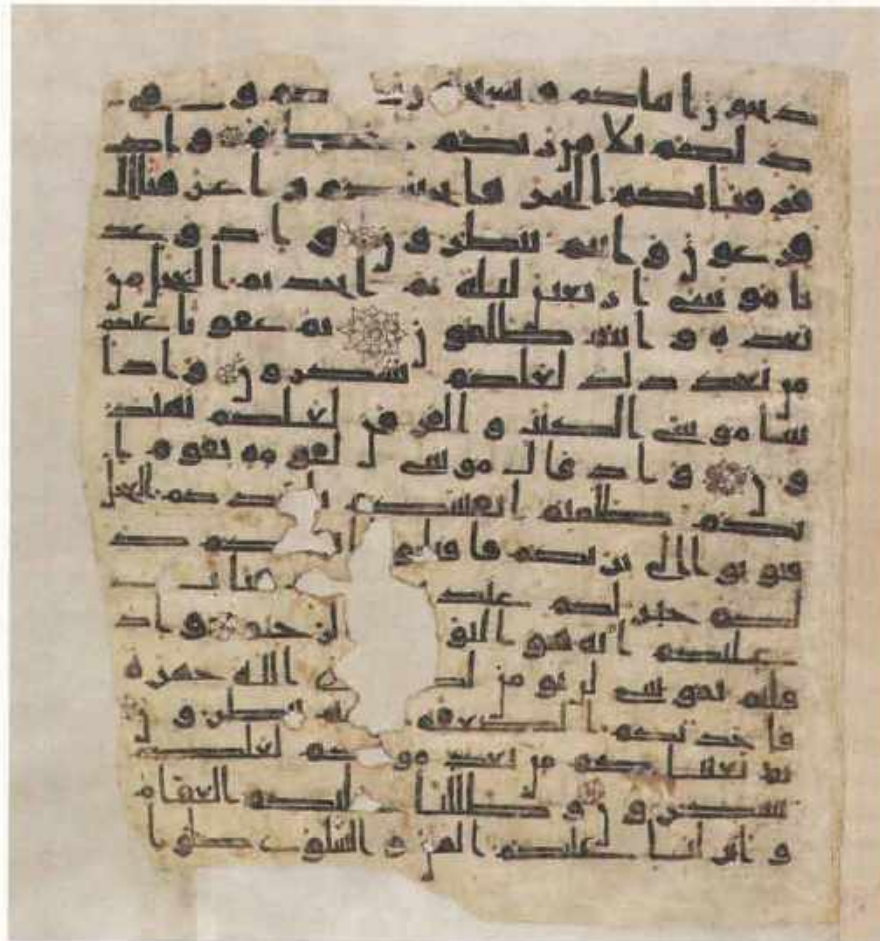 يذبحون ابناكم و يستحيون كم و في
ذلكم بلا من ربكم عظيم و اذ
فرقنا بكم البحر فانجينكم و اغرقنا ال
فرعون و انتم تنظرون و اذ وعد
نا موسى اربعين ليلة ثم اتخذتم العجل من
بعده و انتم ظلمون ثم عفونا عنكم
من بعد ذلك لعلكم تشكرون و اذ ا
تينا موسى الكتب و الفرقن لعلكم تهتد
ون و اذ قال موسى لقومه يقوم ا
نكم ظلمتم انفسكم باتخاذكم العجل
فتوبوا الى باريكم فاقتلوا انفسكم ذ
لكم خير لكم عند فتاب
عليكم انه هو التو الرحيم و اذ
قلتم يموسى لن نومن لك نرى الله جهرة
فاخذتكم الصعقة و انتم تنظرون
ثم بعثنكم من بعد موتكم لعلكم
تشكرون و ظللنا عليكم الغمام
و انزلنا عليكم المن و السلوى كلوا